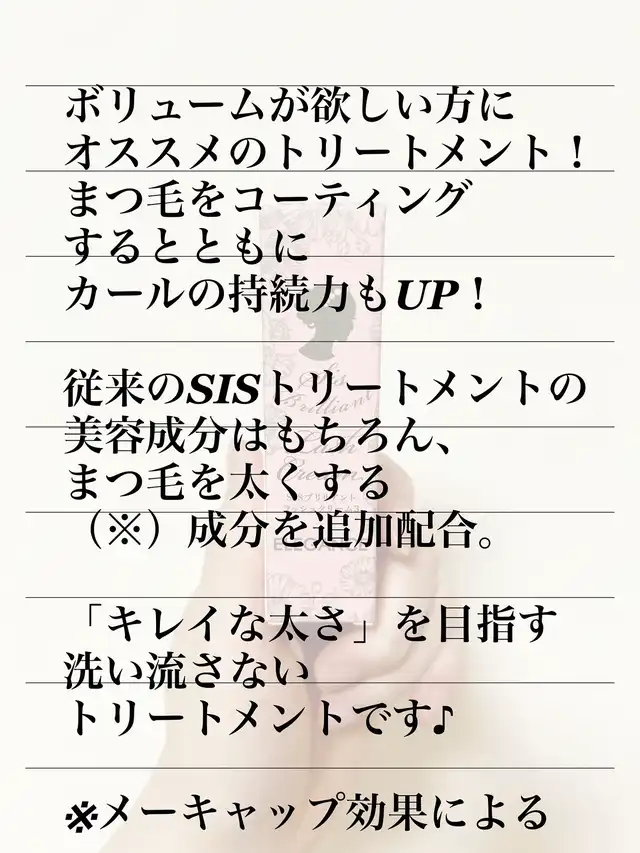 ボリュームが欲しい方に
オススメのトリートメント！
まつ毛をコーティング
するとともに
カールの持続力もUP！
従来のSISトリートメントの
美容成分はもちろん、
まつ毛を太くする
（※）成分を追加配合。
「キレイな太さ」を目指す
洗い流さない
トリートメントです♪
※メーキャップ効果による
Sis
Brilliant
Lash
Cream
ELEGANCE